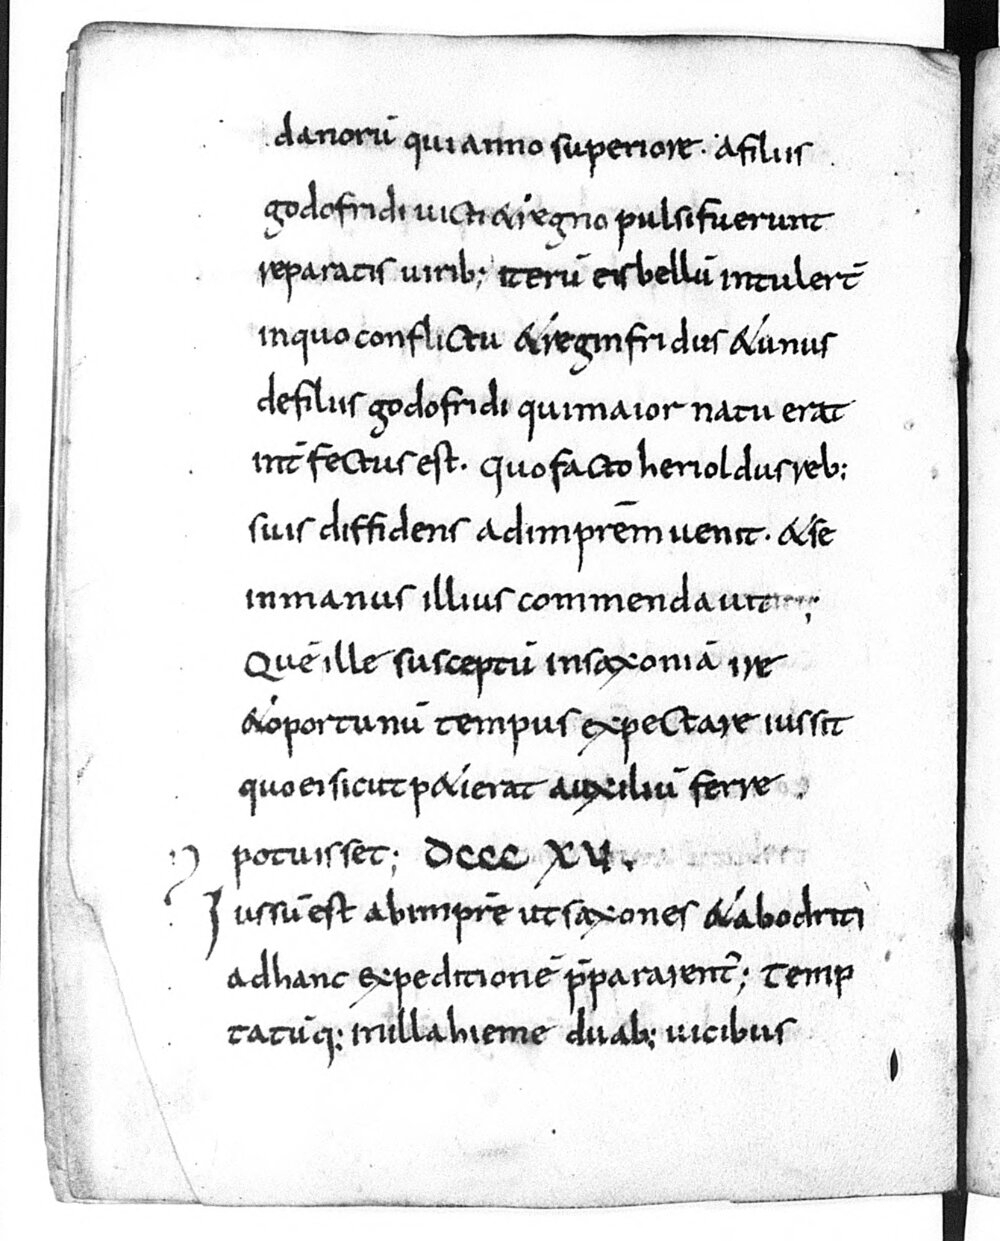 danorū qui anno superiore. afiliis
godofridi uicti & regno pulsi fuerunt
reparatis uirib; iterū eis bellū intulert̄
inquo conflictu & reginfridus & unus
defiliis godofridi qui maior natu erat
int̄fectus est. quo facto herioldus reb;
suis diffidens ad imprēm uenit. & se
inmanus illius commendauit;
Quē ille susceptū insaxoniā ire
& oportunū tempus expectare iussit
quo ei sicut p&ierat auxiliū ferre
potuisset; DCCC XV.
Iussū est abimprē ut saxones & abodriti
adhanc expeditionē p̄pararent̄; Temp
tatūq; in illa hieme duab; uicibus